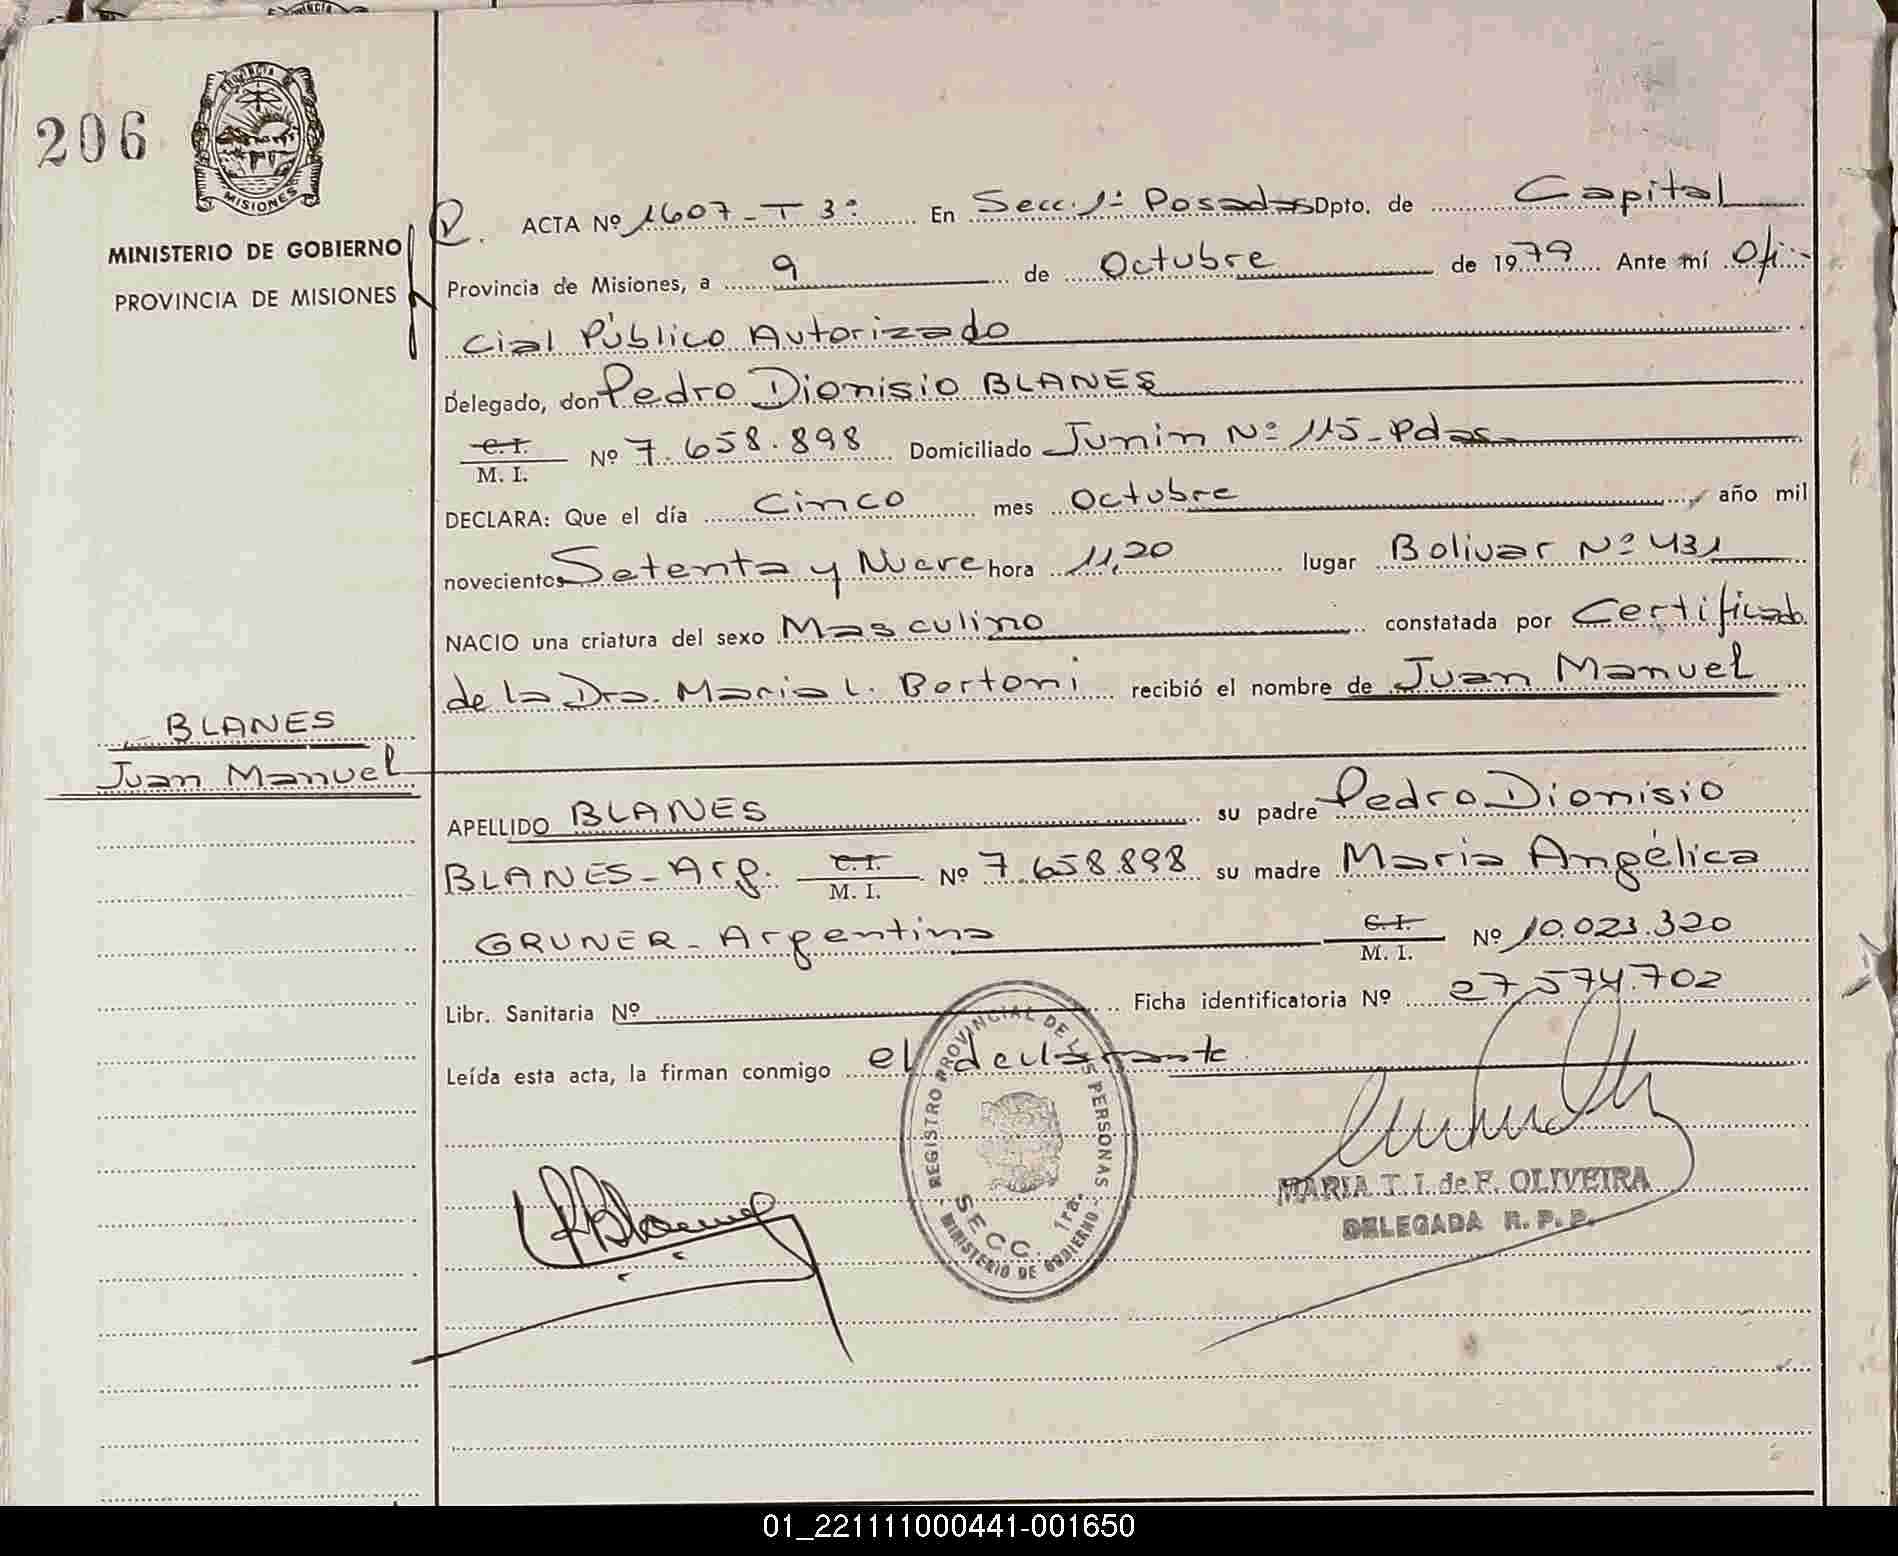 206
PROVINCIA DE
MISIONES
MINISTERIO DE GOBIERNO
PROVINCIA DE MISIONES
ACTA Nº 1607-T 3º En Secc. 1ª Posadas Dpto. de Capital
Provincia de Misiones, a 9 de Octubre de 1979 Ante mí Ofi-
cial Público Autorizado
Delegado, don Pedro Dionisio BLANES
C.I. M. I. Nº 7.658.898 Domiciliado Junin Nº 115-Pdas.
DECLARA: Que el día Cinco mes Octubre, año mil
novecientos Setenta y Nueve hora 11,20 lugar Bolivar Nº 431
NACIO una criatura del sexo Masculino constatada por Certificado
de la Dra. Maria L. Bortoni recibió el nombre de Juan Manuel
BLANES
Juan Manuel
APELLIDO BLANES su padre Pedro Dionisio
BLANES-Arg. C.I. M. I. Nº 7.658.898 su madre Maria Angélica
GRUNER-Argentina C.I. M. I. Nº 10.023.320
Libr. Sanitaria Nº Ficha identificatoria Nº 27.574.702
Leída esta acta, la firman conmigo el declarante
REGISTRO PROVINCIAL DE LAS PERSONAS
SECC. 1ra.
- MINISTERIO DE GOBIERNO -
MARIA T. I. de F. OLIVEIRA
DELEGADA R. P. P.
01_221111000441-001650